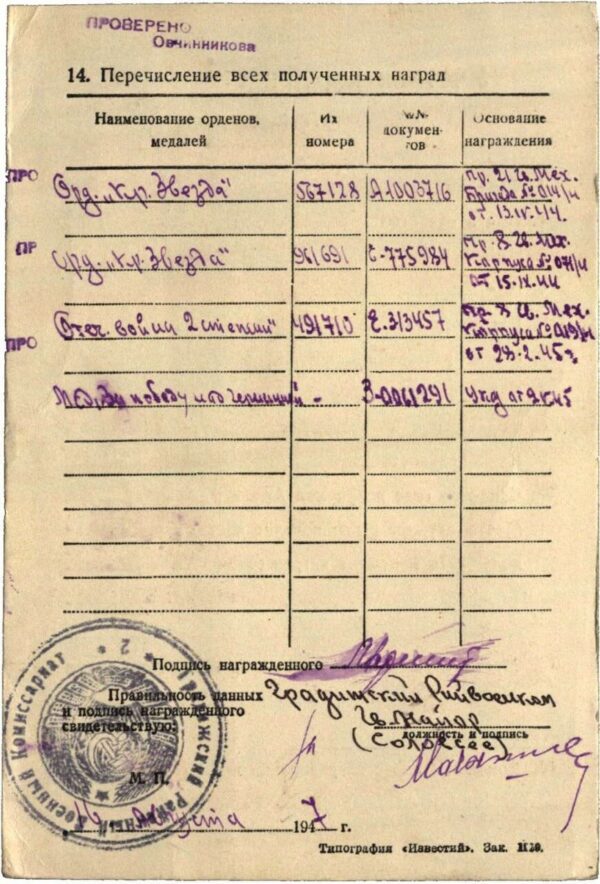 ПРОВЕРЕНО
Овчинникова
14. Перечисление всех полученных наград
Наименование орденов, медалей
Их номера
№№ документов
Основание награждения
ПРО
Орд. „Кр. Звезда"
567128
А1003716
пр. 21 Гв. Мех.
Бригады № 014/н
от 13.IX.44.
ПР
Орд. „Кр. Звезда"
961691
Е-775984
пр. 8 Гв. Мех.
Корпуса №
от 15.IX.44
ПРО
Отеч. войны 2 степени"
491710
Е.313457
пр 8 Гв. Мех.
Корпуса № 019/н
от 28.2.45г
Мед. За победу над Германией -
З-0061291
Указ от 9.V.45
Подпись награжденного
Правильность данных
и подпись награжденного
свидетельствую:
Градижский Райвоенком
Гв. Майор
должность и подпись
М. П.
Районный Военный Комиссариат
Августа 1947 г.
Типография «Известий». Зак.